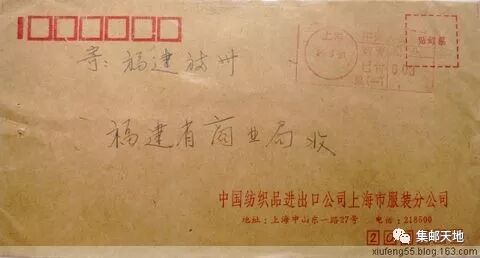 上海
已付
寄：福建福州
福建省商业局收
中国纺织品进出口公司上海市服装分公司
地址：上海中山东一路27号 电话：218500
20
集邮天地
xiufeng55.blog.163.com